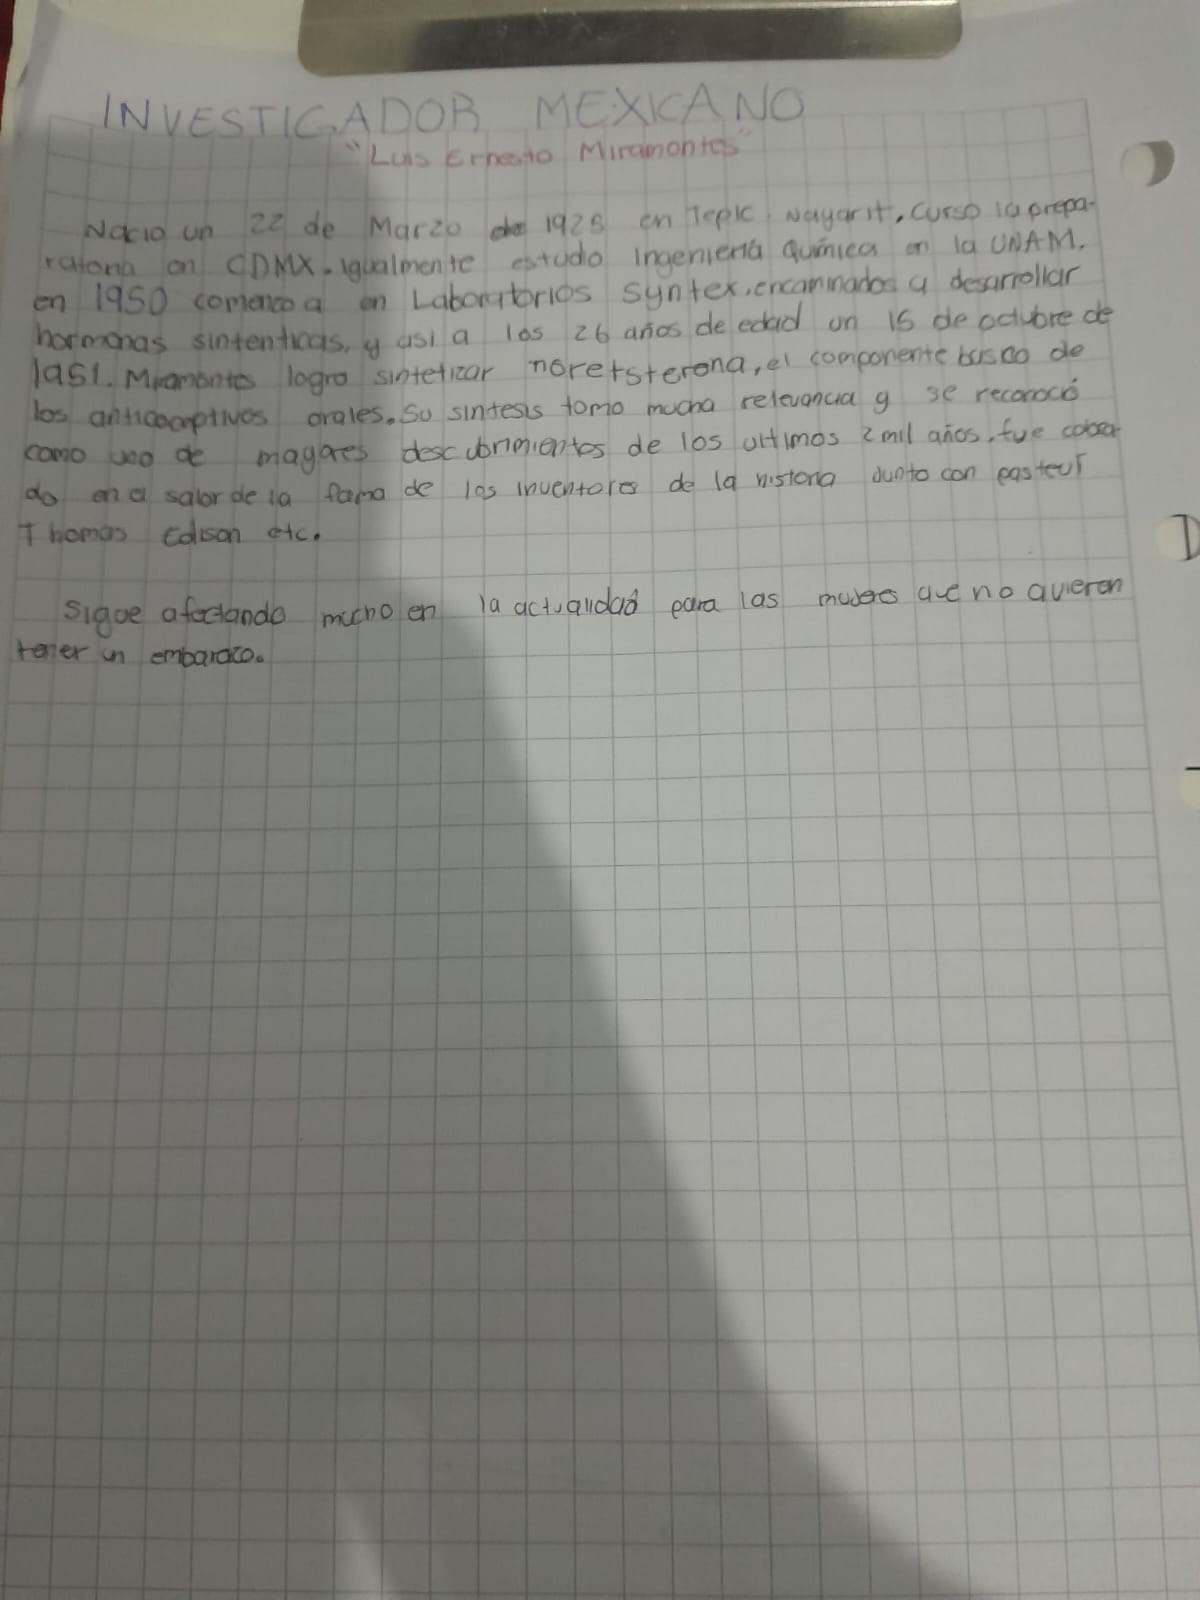 INVESTIGADOR MEXICANO
"Luis Ernesto Miramontes"
Nacio un 22 de Marzo de 1925 en Tepic, Nayarit. Curso la prepa-
ratoria en CDMX. Igualmente estudio Ingeniería Química en la UNAM.
en 1950 comenzo a en Laboratorios Syntex, encaminados a desarrollar
hormonas sintenticas, y asi a los 26 años de edad un 15 de octubre de
1951. Miramontes logro sintetizar noretsterona, el componente basico de
los anticonceptivos orales. Su sintesis tomo mucha relevancia y se reconoció
como uno de magores descubrimientos de los ultimos 2 mil años. fue coloca-
do en el salor de la fama de los inventores de la historia Junto con pasteur
Thomas Edison etc.
Sigue afectando mucho en la actualidad para las mujeres que no quieren
tener un embarazo.
D